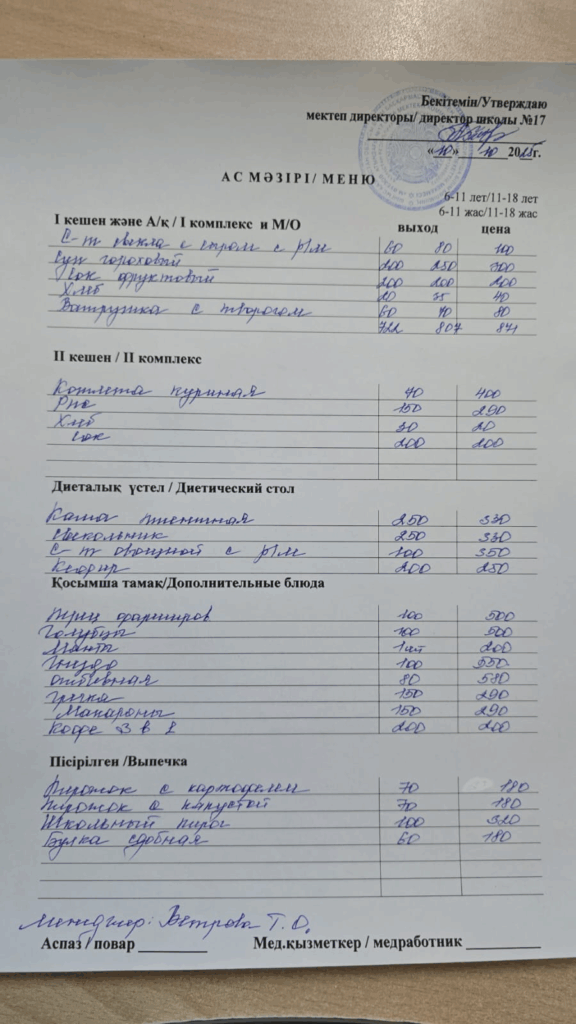 Бекітемін/Утверждаю
мектеп директоры/ директор школы №17
«10» 10 2025г.
АС МӘЗІРІ/ МЕНЮ
6-11 лет/11-18 лет
6-11 жас/11-18 жас
І кешен және А/қ / І комплекс и М/О выход цена
С-т свекла с сыром с р/м 60 80 100
Суп гороховый 200 250 300
Сок фруктовый 200 200 200
Хлеб 20 35 40
Ватрушка с творогом 60 70 80
722 807 871
ІІ кешен / ІІ комплекс
Котлета куриная 70 400
Рис 150 290
Хлеб 30 20
Сок 200 200
Диеталық үстел / Диетический стол
Каша пшенная 250 330
Рассольник 250 330
С-т овощной с р/м 100 350
Кефир 200 250
Қосымша тамақ/Дополнительные блюда
Перец фарширов 100 500
Голубцы 100 500
Манты 1шт 200
Гнездо 100 550
Отбивная 80 580
Гречка 150 290
Макароны 150 290
Кофе 3 в 1 200 200
Пісірілген /Выпечка
Пирожок с картофелем 70 180
Пирожок с капустой 70 180
Школьный пирог 100 320
Булка сдобная 60 180
Менеджер: Ветрова Т.О.
Аспаз / повар Мед.қызметкер / медработник